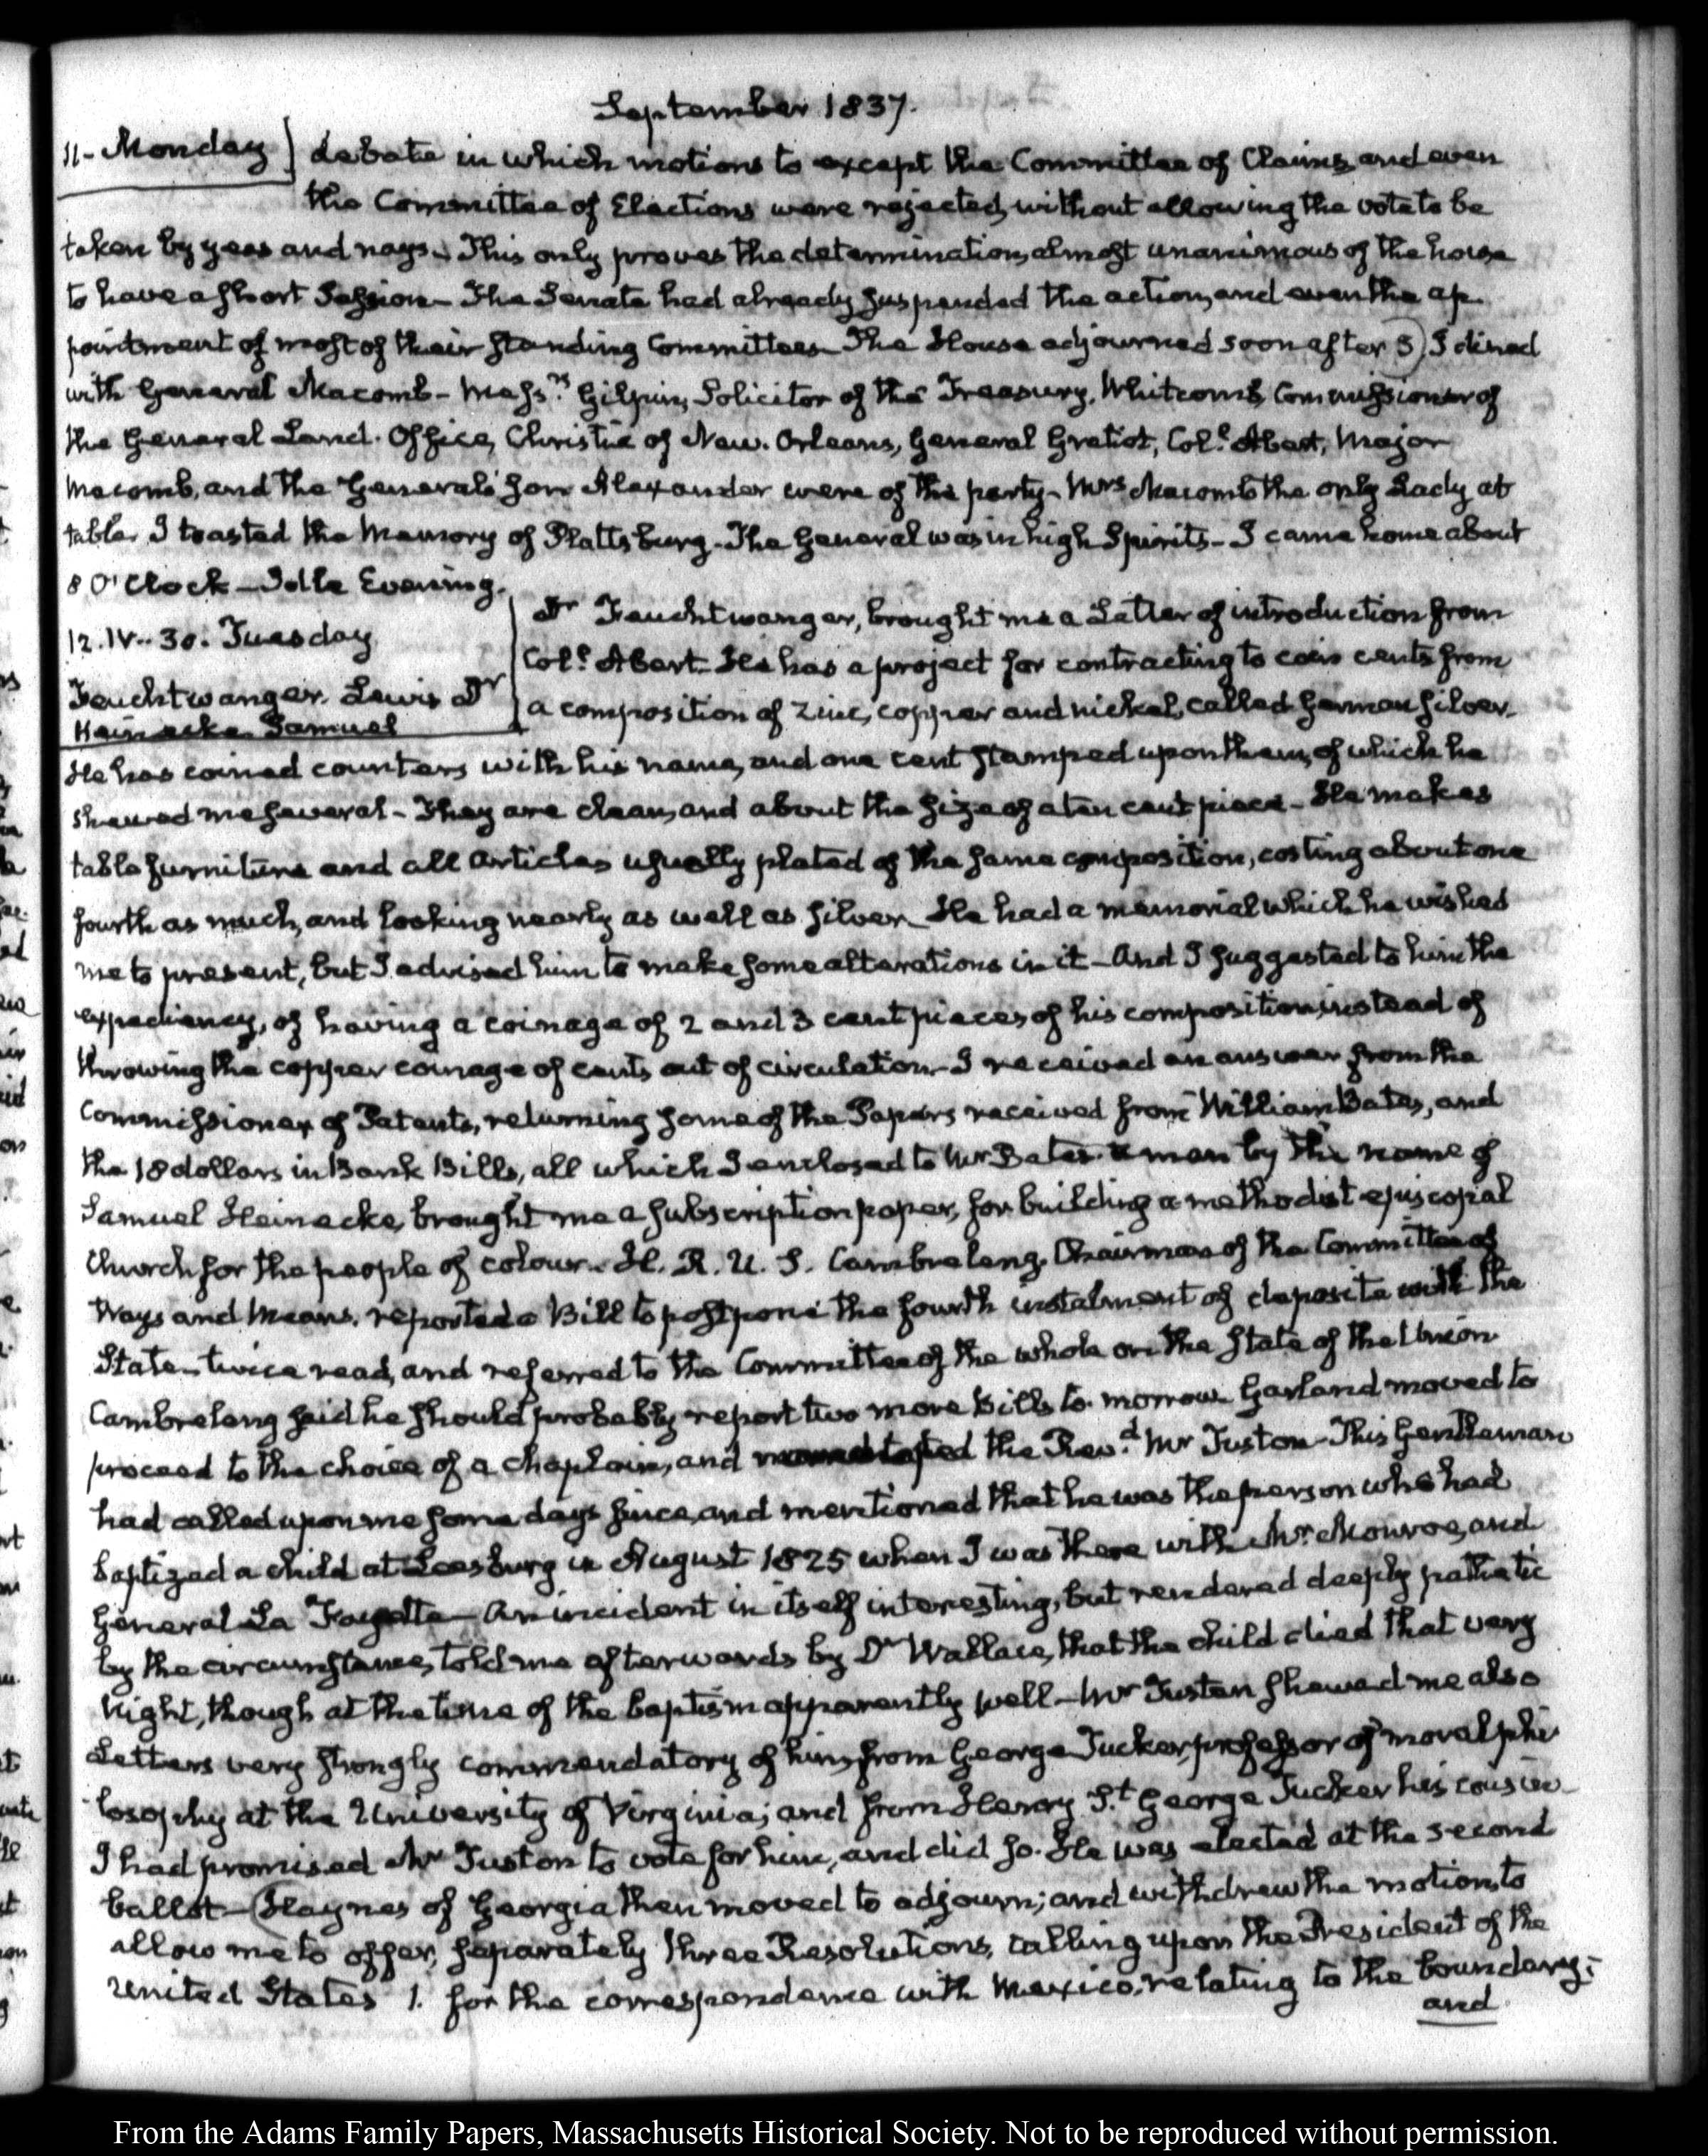 September 1837.
11- Monday
debate in which motions to except the Committee of Claims, and even
the Committee of Elections were rejected, without allowing the vote to be
taken by yeas and nays. This only proves the determination, almost unanimous of the house
to have a short Session - The Senate had already suspended the action, and even the ap
pointment of most of their standing Committees - The House adjourned soon after 3, I dined
with General Macomb - Messrs Gilpin, Solicitor of the Treasury, Whitcomb, Commissioner of
the General Land. Office, Christie of New. Orleans, General Gratiot, Coll Abert, Major
Macomb, and the General's son Alexander were of the party - Mrs Macomb the only Lady at
table. I toasted the Memory of Plattsburg - The General was in high Spirits - I came home about
8 O'Clock - Idle Evening.
12. IV.. 30. Tuesday
Feuchtwanger. Lewis Dr
Heinecke Samuel
Dr Feuchtwanger, brought me a Letter of introduction from
Coll Abert. He has a project for contracting to coin cents from
a composition of zinc, copper and nickel, called German Silver.
He has coined counters with his name, and one cent stamped upon them, of which he
shewed me several - They are clean, and about the size of a ten cent piece - He makes
table furniture and all articles usually plated of the same composition, costing about one
fourth as much, and looking nearly as well as silver - He had a memorial which he wished
me to present, but I advised him to make some alterations in it - And I suggested to him the
expediency, of having a coinage of 2 and 3 cent pieces, of his composition, instead of
throwing the copper coinage of cents, out of circulation - I received an answer from the
Commissioner of Patents, returning some of the Papers received from William Bates, and
the 18 dollars in Bank Bills, all which I enclosed to Mr Bates. A man by the name of
Samuel Heinecke, brought me a subscription paper, for building a methodist episcopal
Church for the people of colour. H. R. U. S. Cambreleng, Chairman of the Committee of
Ways and Means, reported a Bill to postpone the fourth instalment of deposite with the
States - twice read, and referred to the Committee of the whole on the state of the Union
Cambreleng said he should probably report two more bills to-morrow. Garland moved to
proceed to the choice of a chaplain, and the Revd Mr Tuston - This Gentleman
had called upon me some days since, and mentioned that he was the person who had
baptized a child at Leesburg in August 1825 when I was there with Mr Monroe, and
General La Fayette - An incident in itself interesting, but rendered deeply pathetic
by the circumstance, told me afterwards by Dr Wallace, that the child died that very
Night, though at the time of the baptism apparently well - Mr Tuston shewed me also
Letters very strongly commendatory of him, from George Tucker, professor of moral phi
losophy at the University of Virginia; and from Henry St George Tucker his cousin -
I had promised Mr Tuston to vote for him, and did so. He was elected at the second
ballot - Haynes of Georgia then moved to adjourn; and withdrew the motion, to
allow me to offer, separately three Resolutions, calling upon the President of the
United States 1. for the correspondence with Mexico, relating to the boundary;
and
From the Adams Family Papers, Massachusetts Historical Society. Not to be reproduced without permission.